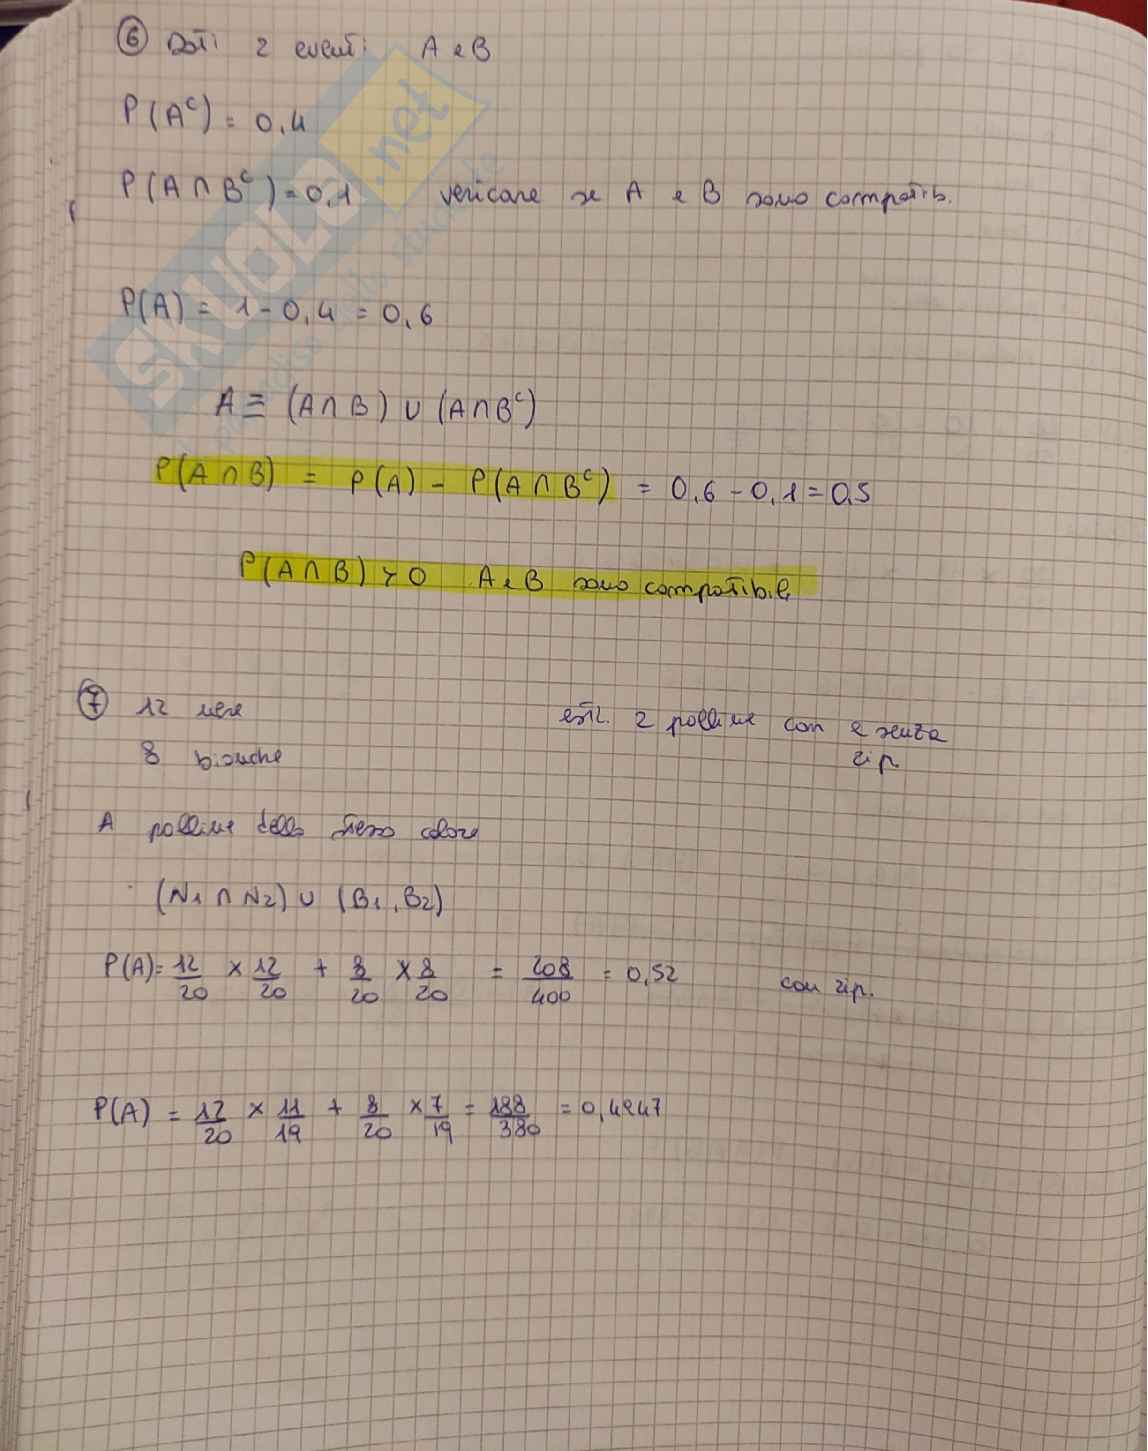 ⑥ Dati 2 eventi A e B
P(Aᶜ) = 0,4
P(A ∩ Bᶜ) = 0,1 vericare se A e B sono compatib.
P(A) = 1 - 0,4 = 0,6
A ≡ (A ∩ B) ∪ (A ∩ Bᶜ)
P(A ∩ B) = P(A) - P(A ∩ Bᶜ) = 0,6 - 0,1 = 0,5
P(A ∩ B) > 0 A e B sono compatibili
⑦ 12 nere estr. 2 palline con e senza
8 bianche rip
A palline dello stesso colore
(N1 ∩ N2) ∪ (B1, B2)
P(A) = 12/20 × 12/20 + 8/20 × 8/20 = 208/400 = 0,52 con rip.
P(A) = 12/20 × 11/19 + 8/20 × 7/19 = 188/380 = 0,4947
SKUOLA.net